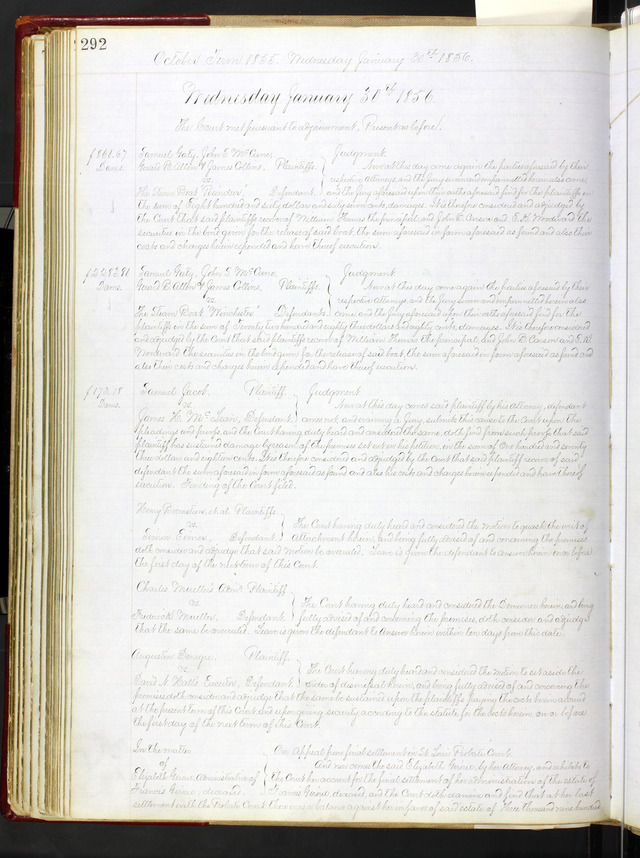 292
October Term 1855. Wednesday January 30th 1856.
Wednesday January 30th 1856
The Court met pursuant to adjournment, Present as before.
$868.67 Samuel Gaty, John S. McCune, Judgment.
Dams. Gerard B. Allen & James Collins, Plaintiffs. Now at this day come again the parties aforesaid by their
vs. respective attorneys, and the Jury sworn and impannelled herein also come,
The Steam Boat " " Defendant. and the Jury aforesaid upon their oaths aforesaid find for the plaintiffs in
the sum of Eight hundred and sixty dollars and sixty seven cents, damages. It is therefore considered and adjudged by
the Court that said plaintiffs recover of William Thomas the principal and John C. and E. A. Woodward the
securities in the bond given for the release of said boat, the sum aforesaid in form aforesaid as found and also their
costs and charges herein expended and have thereof execution.
$2283.81 Samuel Gaty, John S. McCune, Judgment
Dams. Gerard B. Allen & James Collins, Plaintiffs. Now at this day come again the parties aforesaid by their
vs. respective attorneys, and the Jury sworn and impannelled herein also
The Steam Boat "Winchester" Defendant. come, and the Jury aforesaid upon their oaths aforesaid find for the
plaintiffs in the sum of Twenty two hundred and eighty three dollars and eighty cents, damages. It is therefore considered
and adjudged by the Court that said plaintiffs recover of William the principal, and John C. and E. A.
Woodward the securities in the bond given for the release of said boat, the sum aforesaid in form aforesaid as found and
also their costs and charges herein expended and have thereof execution.
$173.18 Samuel Jacob, Plaintiff. Judgment
Dams. vs. Now at this day comes said plaintiff by his attorney, defendant
James H. McLean, Defendant. comes not, and waiving a Jury, submits this cause to the Court upon the
pleadings and proofs, and the Court having duly heard and considered the same, doth find from said proofs that said
plaintiff has sustained damage by reason of the premises set out in his petition, in the sum of One hundred and seventy
three dollars and eighteen cents. It is therefore considered and adjudged by the Court that said plaintiff recover of said
defendant the sum aforesaid in form aforesaid as found and also his costs and charges herein expended and have thereof
execution. Finding of the Court filed.
Henry et al. Plaintiffs
vs. The Court having duly heard and considered the motion to quash the writ of
Defendant. attachment herein, and being fully advised of and concerning the premises
doth consider and adjudge that said motion be overruled. Leave is given the defendant to answer herein on or before
the first day of the next term of this Court.
Charles Mueller's Plaintiff
vs. The Court having duly heard and considered the Demurrer herein, and being
Frederick Mueller, Defendant. fully advised of and concerning the premises, doth consider and adjudge
that the same be overruled. Leave is given the defendant to answer herein within ten days from this date.
Augustus Plaintiff.
vs. The Court having duly heard and considered the motion to set aside the
David Executor, Defendant. order of dismissal herein, and being fully advised of and concerning the
premises doth consider and adjudge that the same be sustained upon the plaintiff's paying the costs herein accrued
at the present term of this Court and upon giving security according to the statute for the costs herein, on or before
the first day of the next term of this Court.
In the matter On Appeal from final settlement in St Louis Probate Court.
of And now comes the said Elizabeth by her Attorney, and exhibits to
Elizabeth Administratrix of the Court her account for the final settlement of her administration of the estate of
Francis deceased. Francis deceased, and the Court doth examine and find that at her last
settlement with the Probate Court there was a balance against her in favor of said estate of Three thousand nine hundred